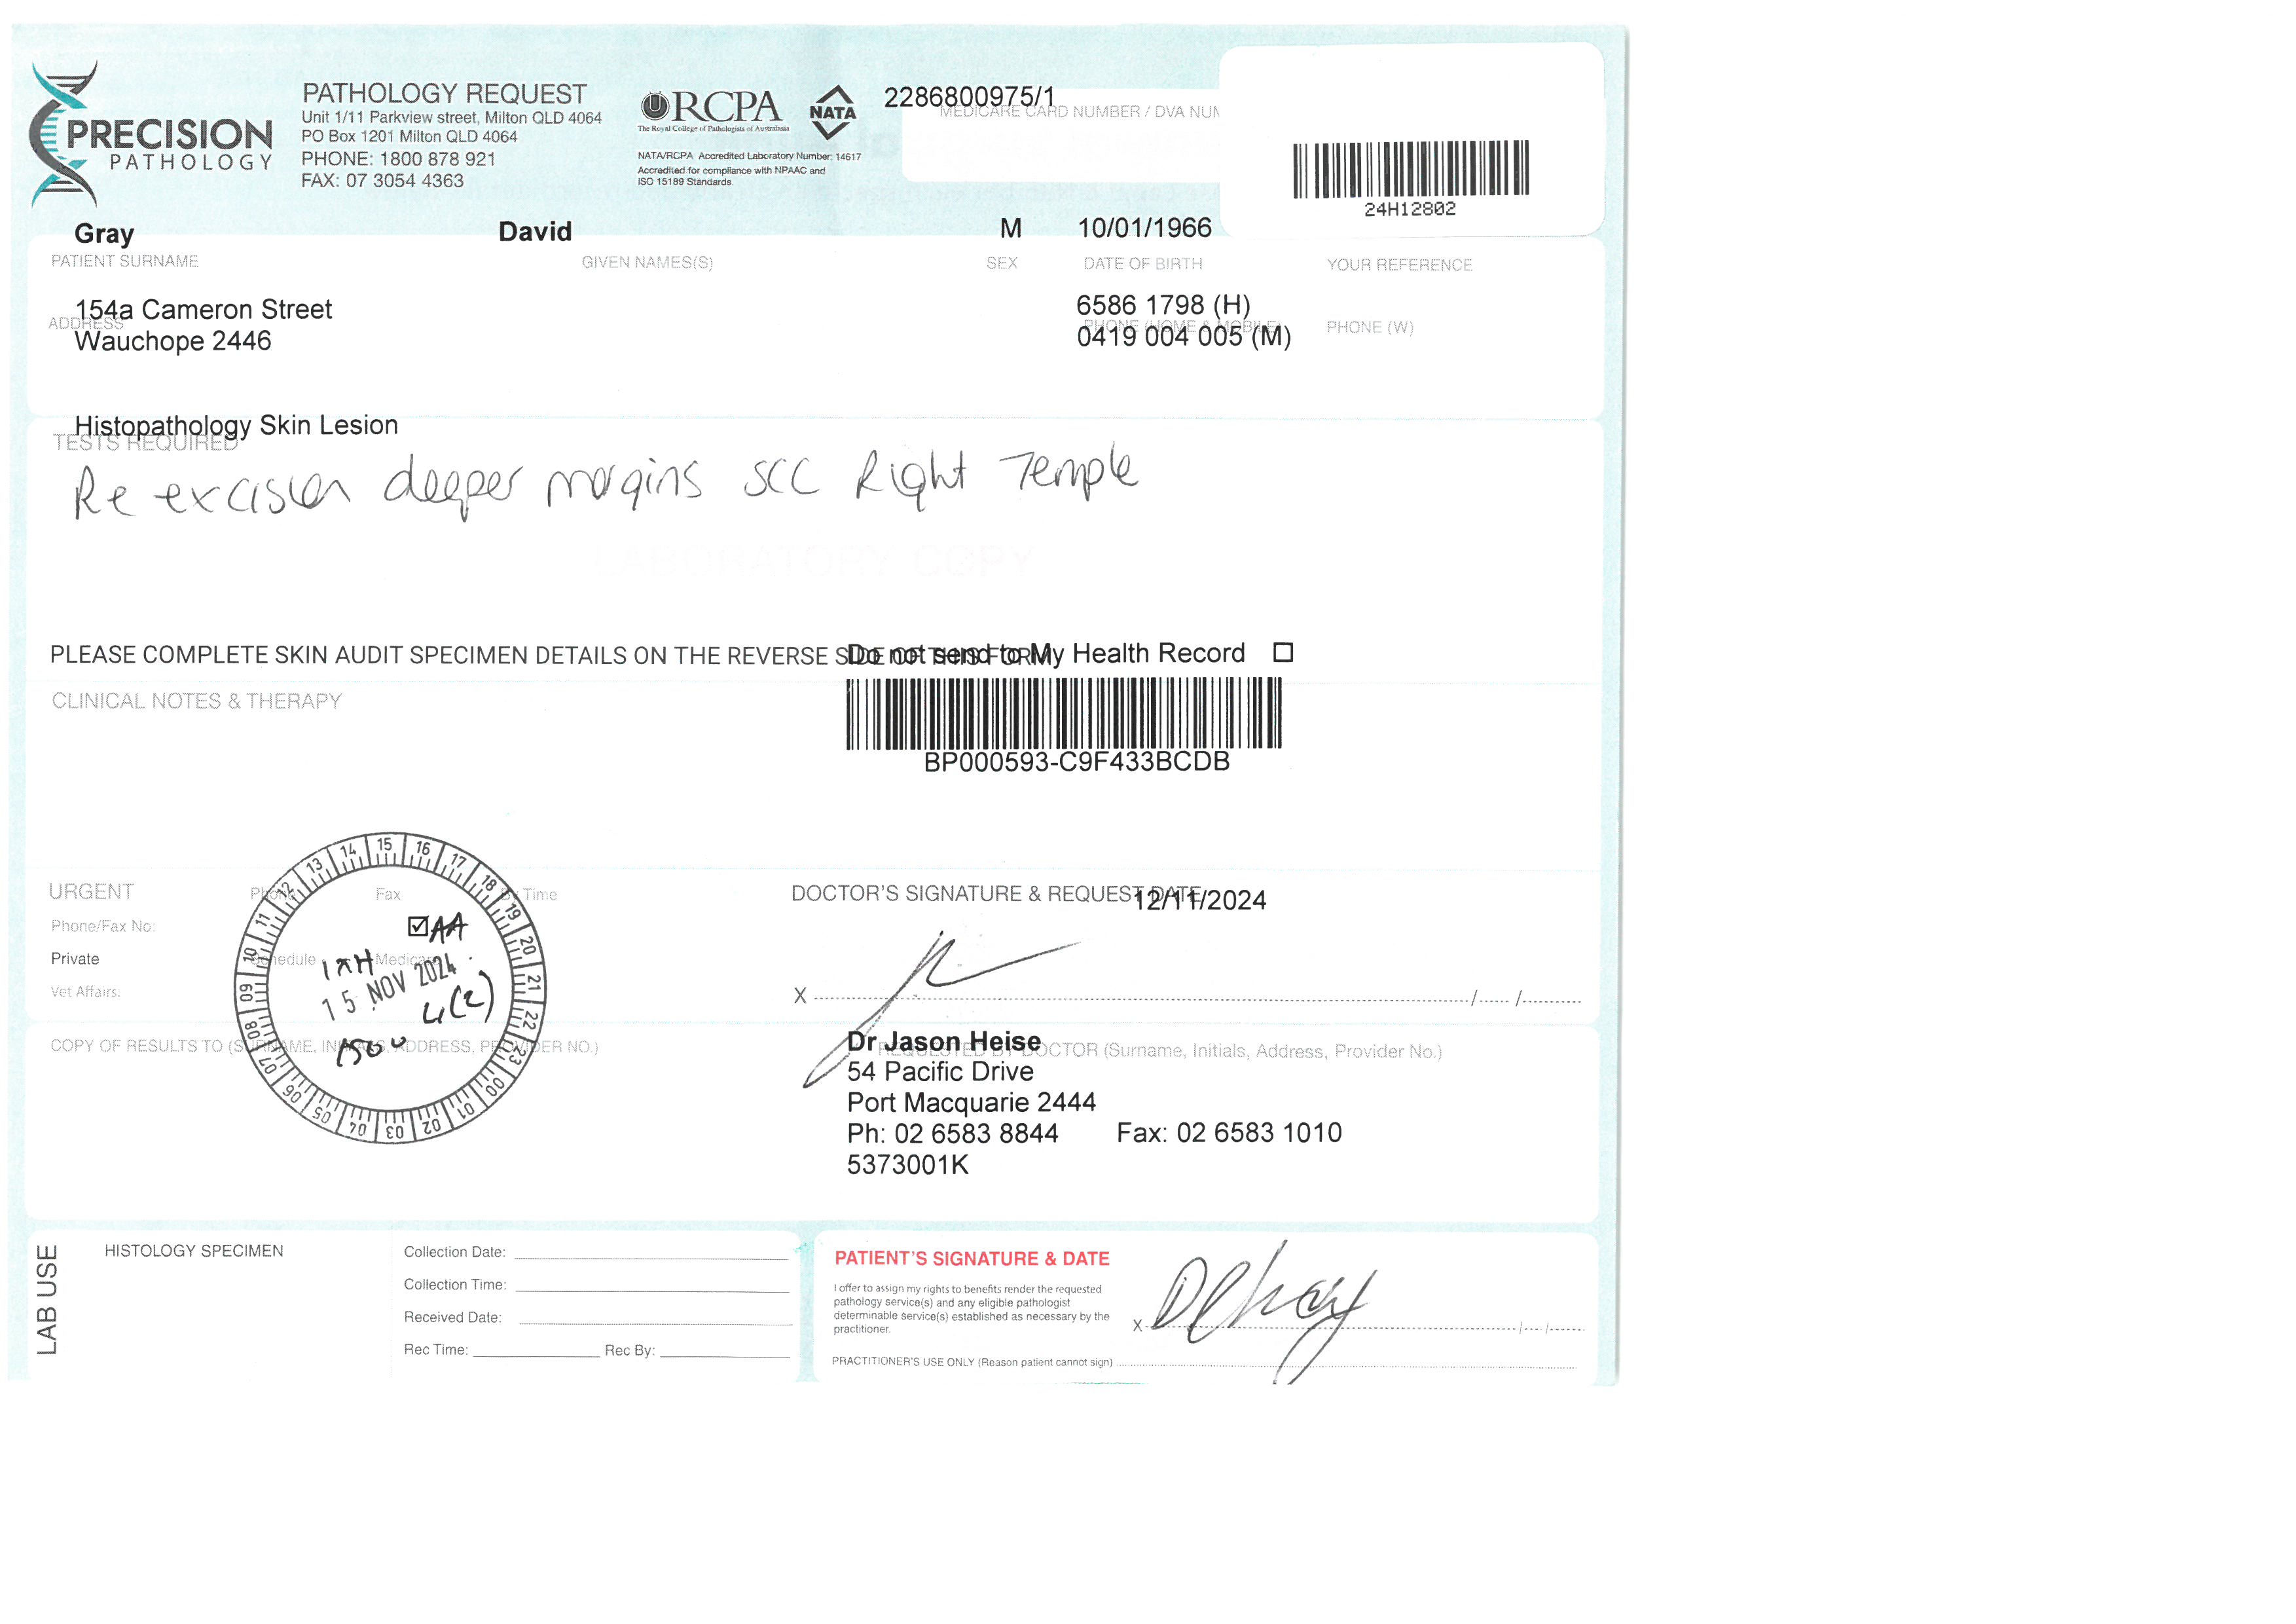 PRECISION
PATHOLOGY
PATHOLOGY REQUEST
Unit 1/11 Parkview street, Milton QLD 4064
PO Box 1201 Milton QLD 4064
PHONE: 1800 878 921
FAX: 07 3054 4363
RCPA
The Royal College of Pathologists of Australasia
NATA
NATA/RCPA Accredited Laboratory Number: 14617
Accredited for compliance with NPAAC and
ISO 15189 Standards.
2286800975/1
MEDICARE CARD NUMBER / DVA NUM
24H12802
Gray David M 10/01/1966
PATIENT SURNAME GIVEN NAMES(S) SEX DATE OF BIRTH YOUR REFERENCE
154a Cameron Street 6586 1798 (H)
ADDRESS PHONE (HOME & MOBILE) PHONE (W)
Wauchope 2446 0419 004 005 (M)
Histopathology Skin Lesion
TESTS REQUIRED
Re excision deeper margins SCC Right Temple
LABORATORY COPY
PLEASE COMPLETE SKIN AUDIT SPECIMEN DETAILS ON THE REVERSE SIDE OF THIS FORM
Do not send to My Health Record
CLINICAL NOTES & THERAPY
BP000593-C9F433BCDB
URGENT Phone Fax By Time
Phone/Fax No:
Private Schedule Medicare
Vet Affairs:
12 13 14 15 16 17 18 19 20 21 22 23 00 01 02 03 04 05 06 07 08 09 10 11
AA
15 NOV 2024
4(2)
DOCTOR'S SIGNATURE & REQUEST DATE
12/11/2024
X / /
COPY OF RESULTS TO (SURNAME, INITIALS, ADDRESS, PROVIDER NO.)
Dr Jason Heise
REQUESTED BY DOCTOR (Surname, Initials, Address, Provider No.)
54 Pacific Drive
Port Macquarie 2444
Ph: 02 6583 8844 Fax: 02 6583 1010
5373001K
LAB USE
HISTOLOGY SPECIMEN
Collection Date:
Collection Time:
Received Date:
Rec Time: Rec By:
PATIENT'S SIGNATURE & DATE
I offer to assign my rights to benefits render the requested
pathology service(s) and any eligible pathologist
determinable service(s) established as necessary by the
practitioner.
X / /
PRACTITIONER'S USE ONLY (Reason patient cannot sign)